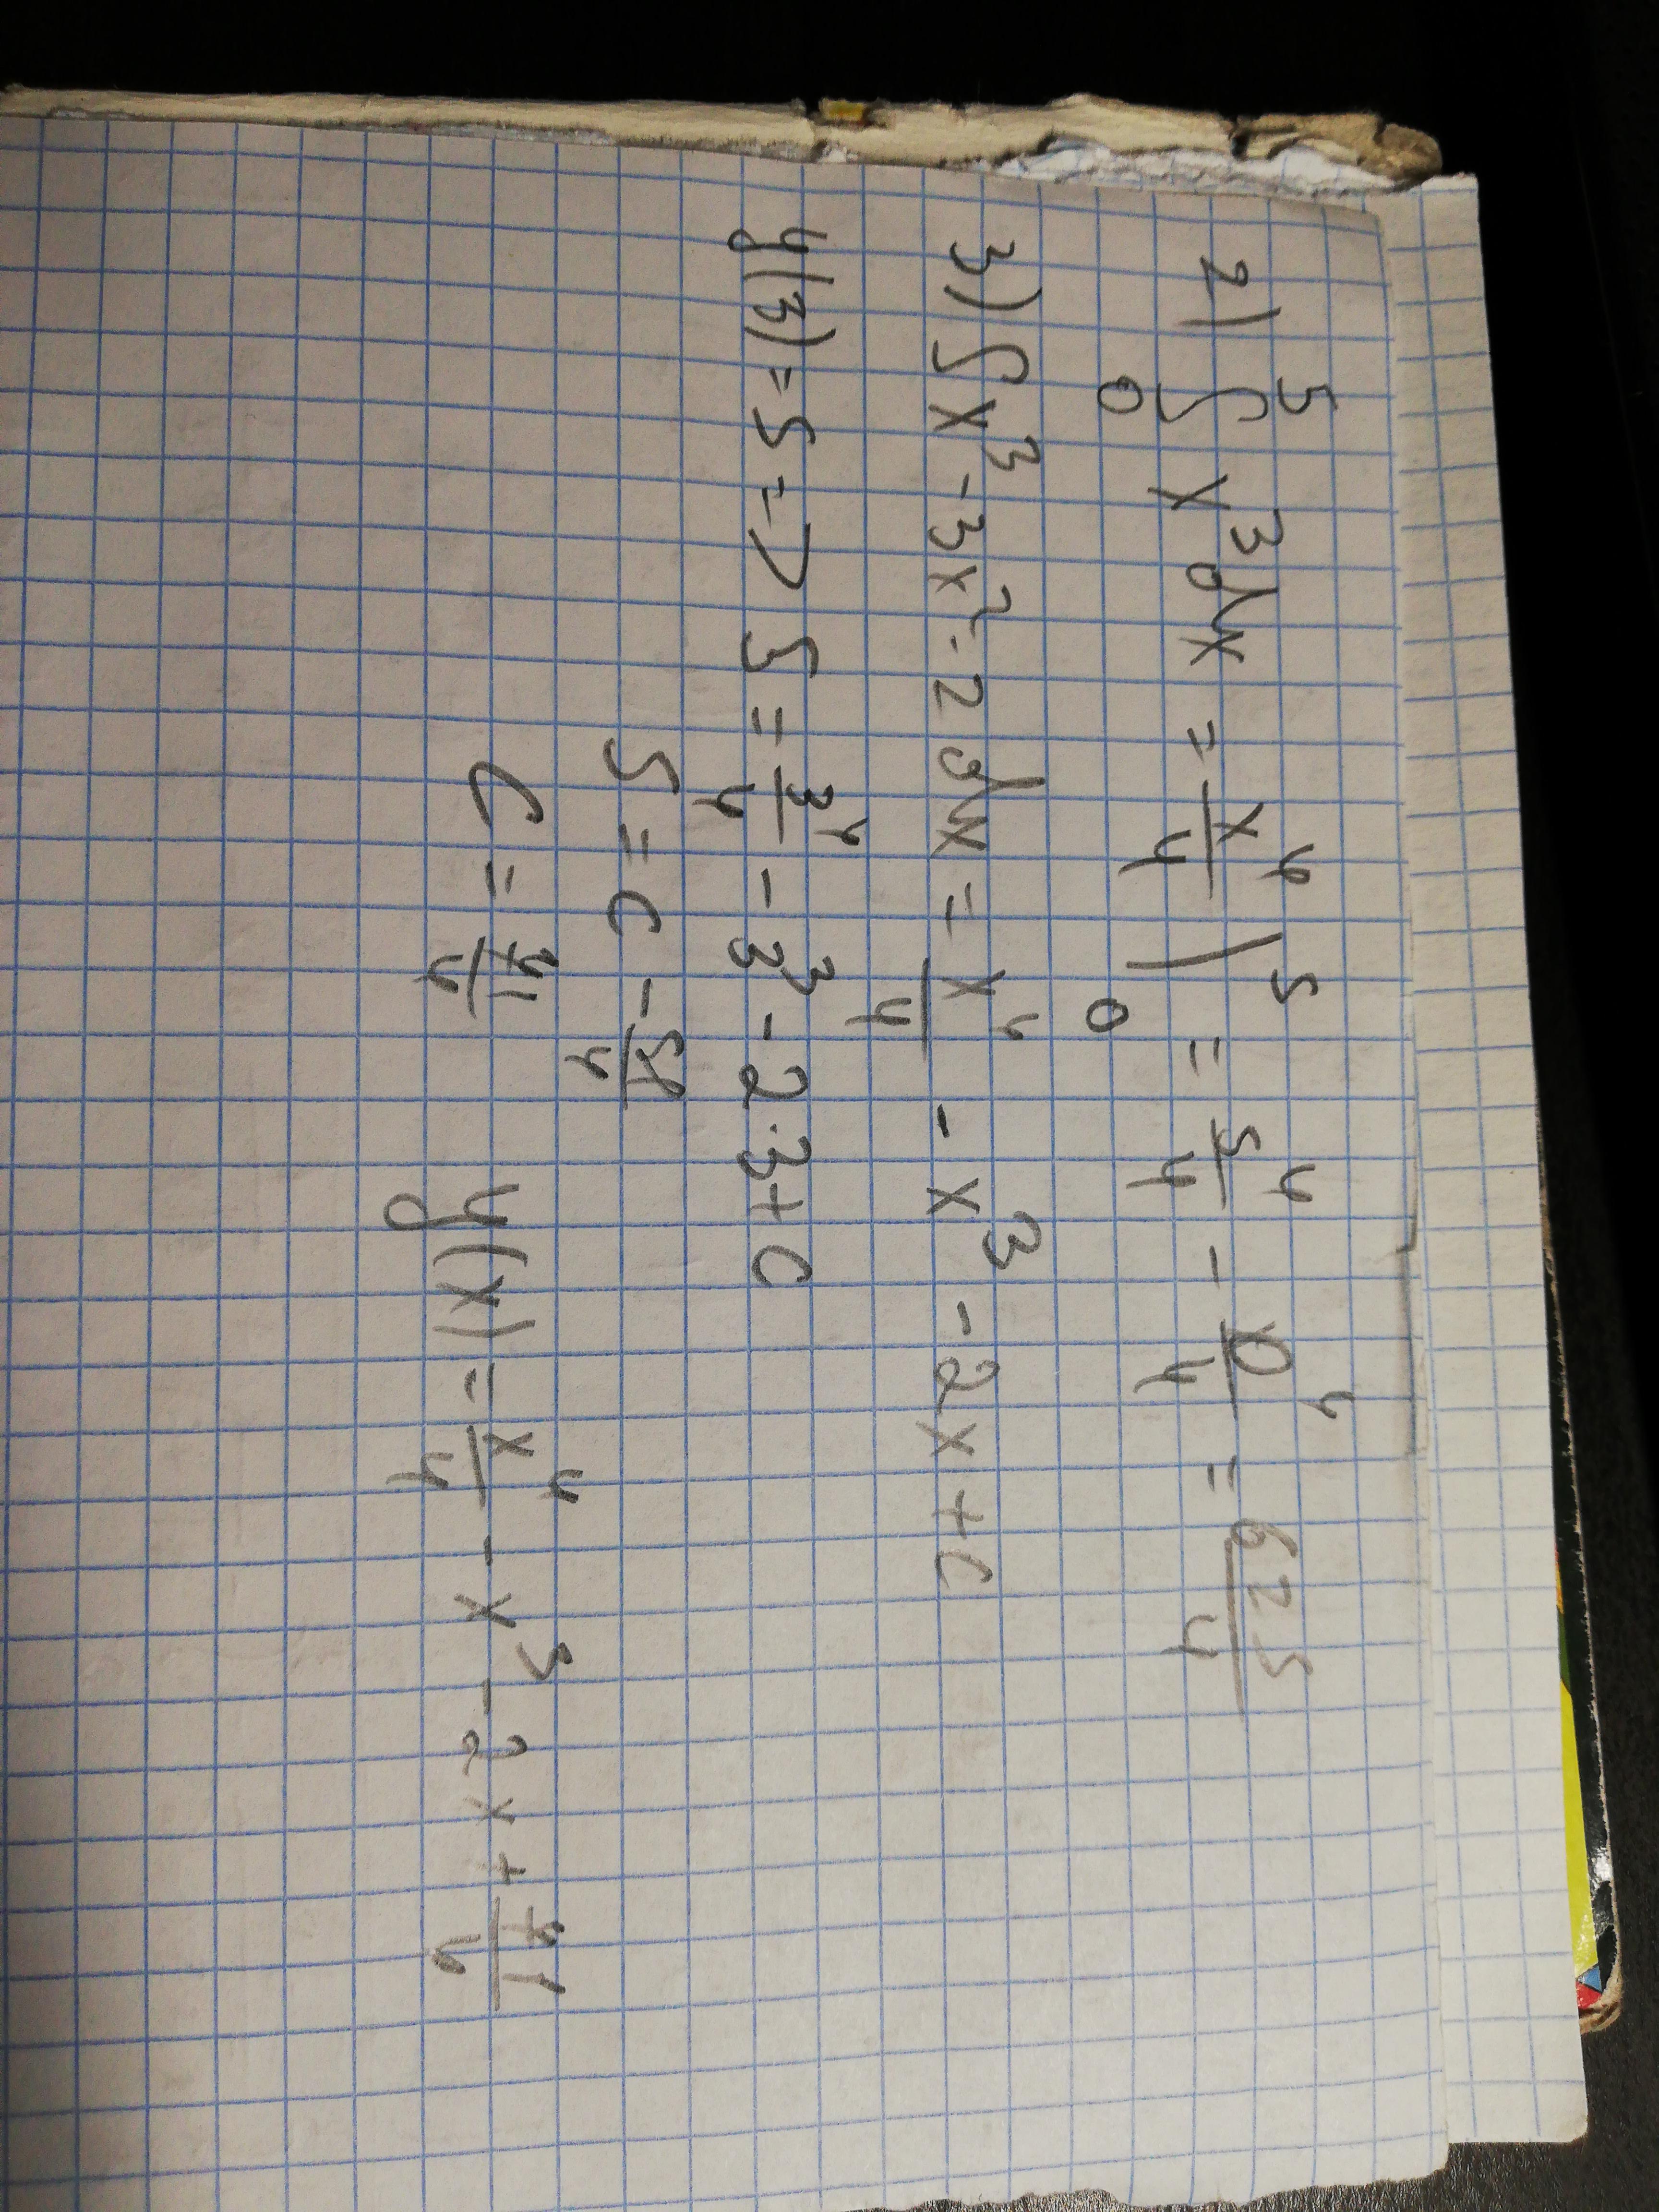 2) ∫₀⁵ x³dx = x⁴/4 |₀⁵ = 5⁴/4 - 0⁴/4 = 625/4
3) ∫x³-3x²-2dx = x⁴/4 - x³ - 2x + C
y(3) = 5 => 5 = 3⁴/4 - 3³ - 2·3 + C
5 = C - 51/4
C = 71/4 y(x) = x⁴/4 - x³ - 2x + 71/4